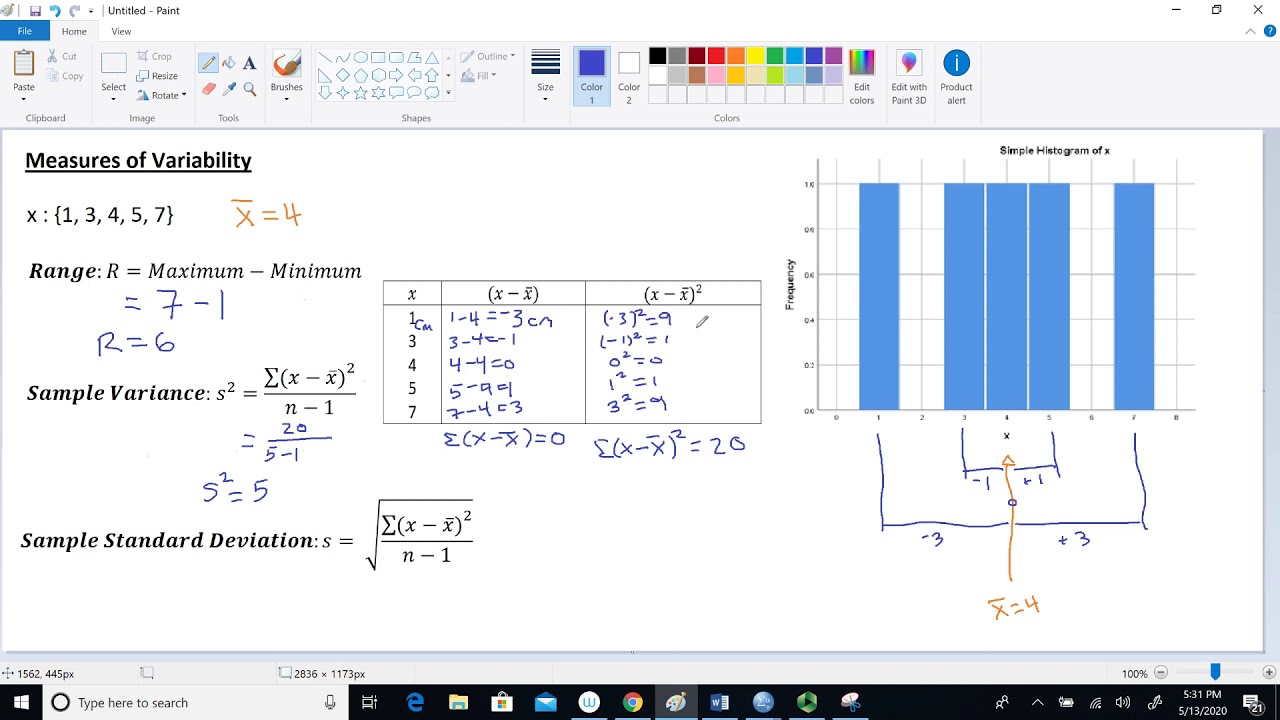 Untitled - Paint
File Home View
Paste
Cut
Copy
Clipboard
Select
Crop
Resize
Rotate
Image
Tools
Brushes
Shapes
Outline
Fill
Size
Color 1
Color 2
Colors
Edit colors
Edit with Paint 3D
Product alert
Measures of Variability
x : {1, 3, 4, 5, 7}
x̄ = 4
Range: R = Maximum − Minimum
= 7 - 1
R = 6
Sample Variance: s² = ∑(x − x̄)² / n − 1
= 20 / 5-1
S² = 5
Sample Standard Deviation: s = √(∑(x − x̄)² / n − 1)
x (x − x̄) (x − x̄)²
1 cm 1-4=-3 cm (-3)²=9
3 3-4=-1 (-1)²=1
4 4-4=0 0²=0
5 5-4=1 1²=1
7 7-4=3 3²=9
Σ(x-x̄)=0 Σ(x-x̄)²=20
Simple Histogram of x
Frequency
1.0
0.8
0.6
0.4
0.2
0.0
0 1 2 3 4 5 6 7 8
x
-1 +1
0
-3 +3
x̄=4
1562, 445px
2836 × 1173px
100%
Type here to search
5:31 PM
5/13/2020
21